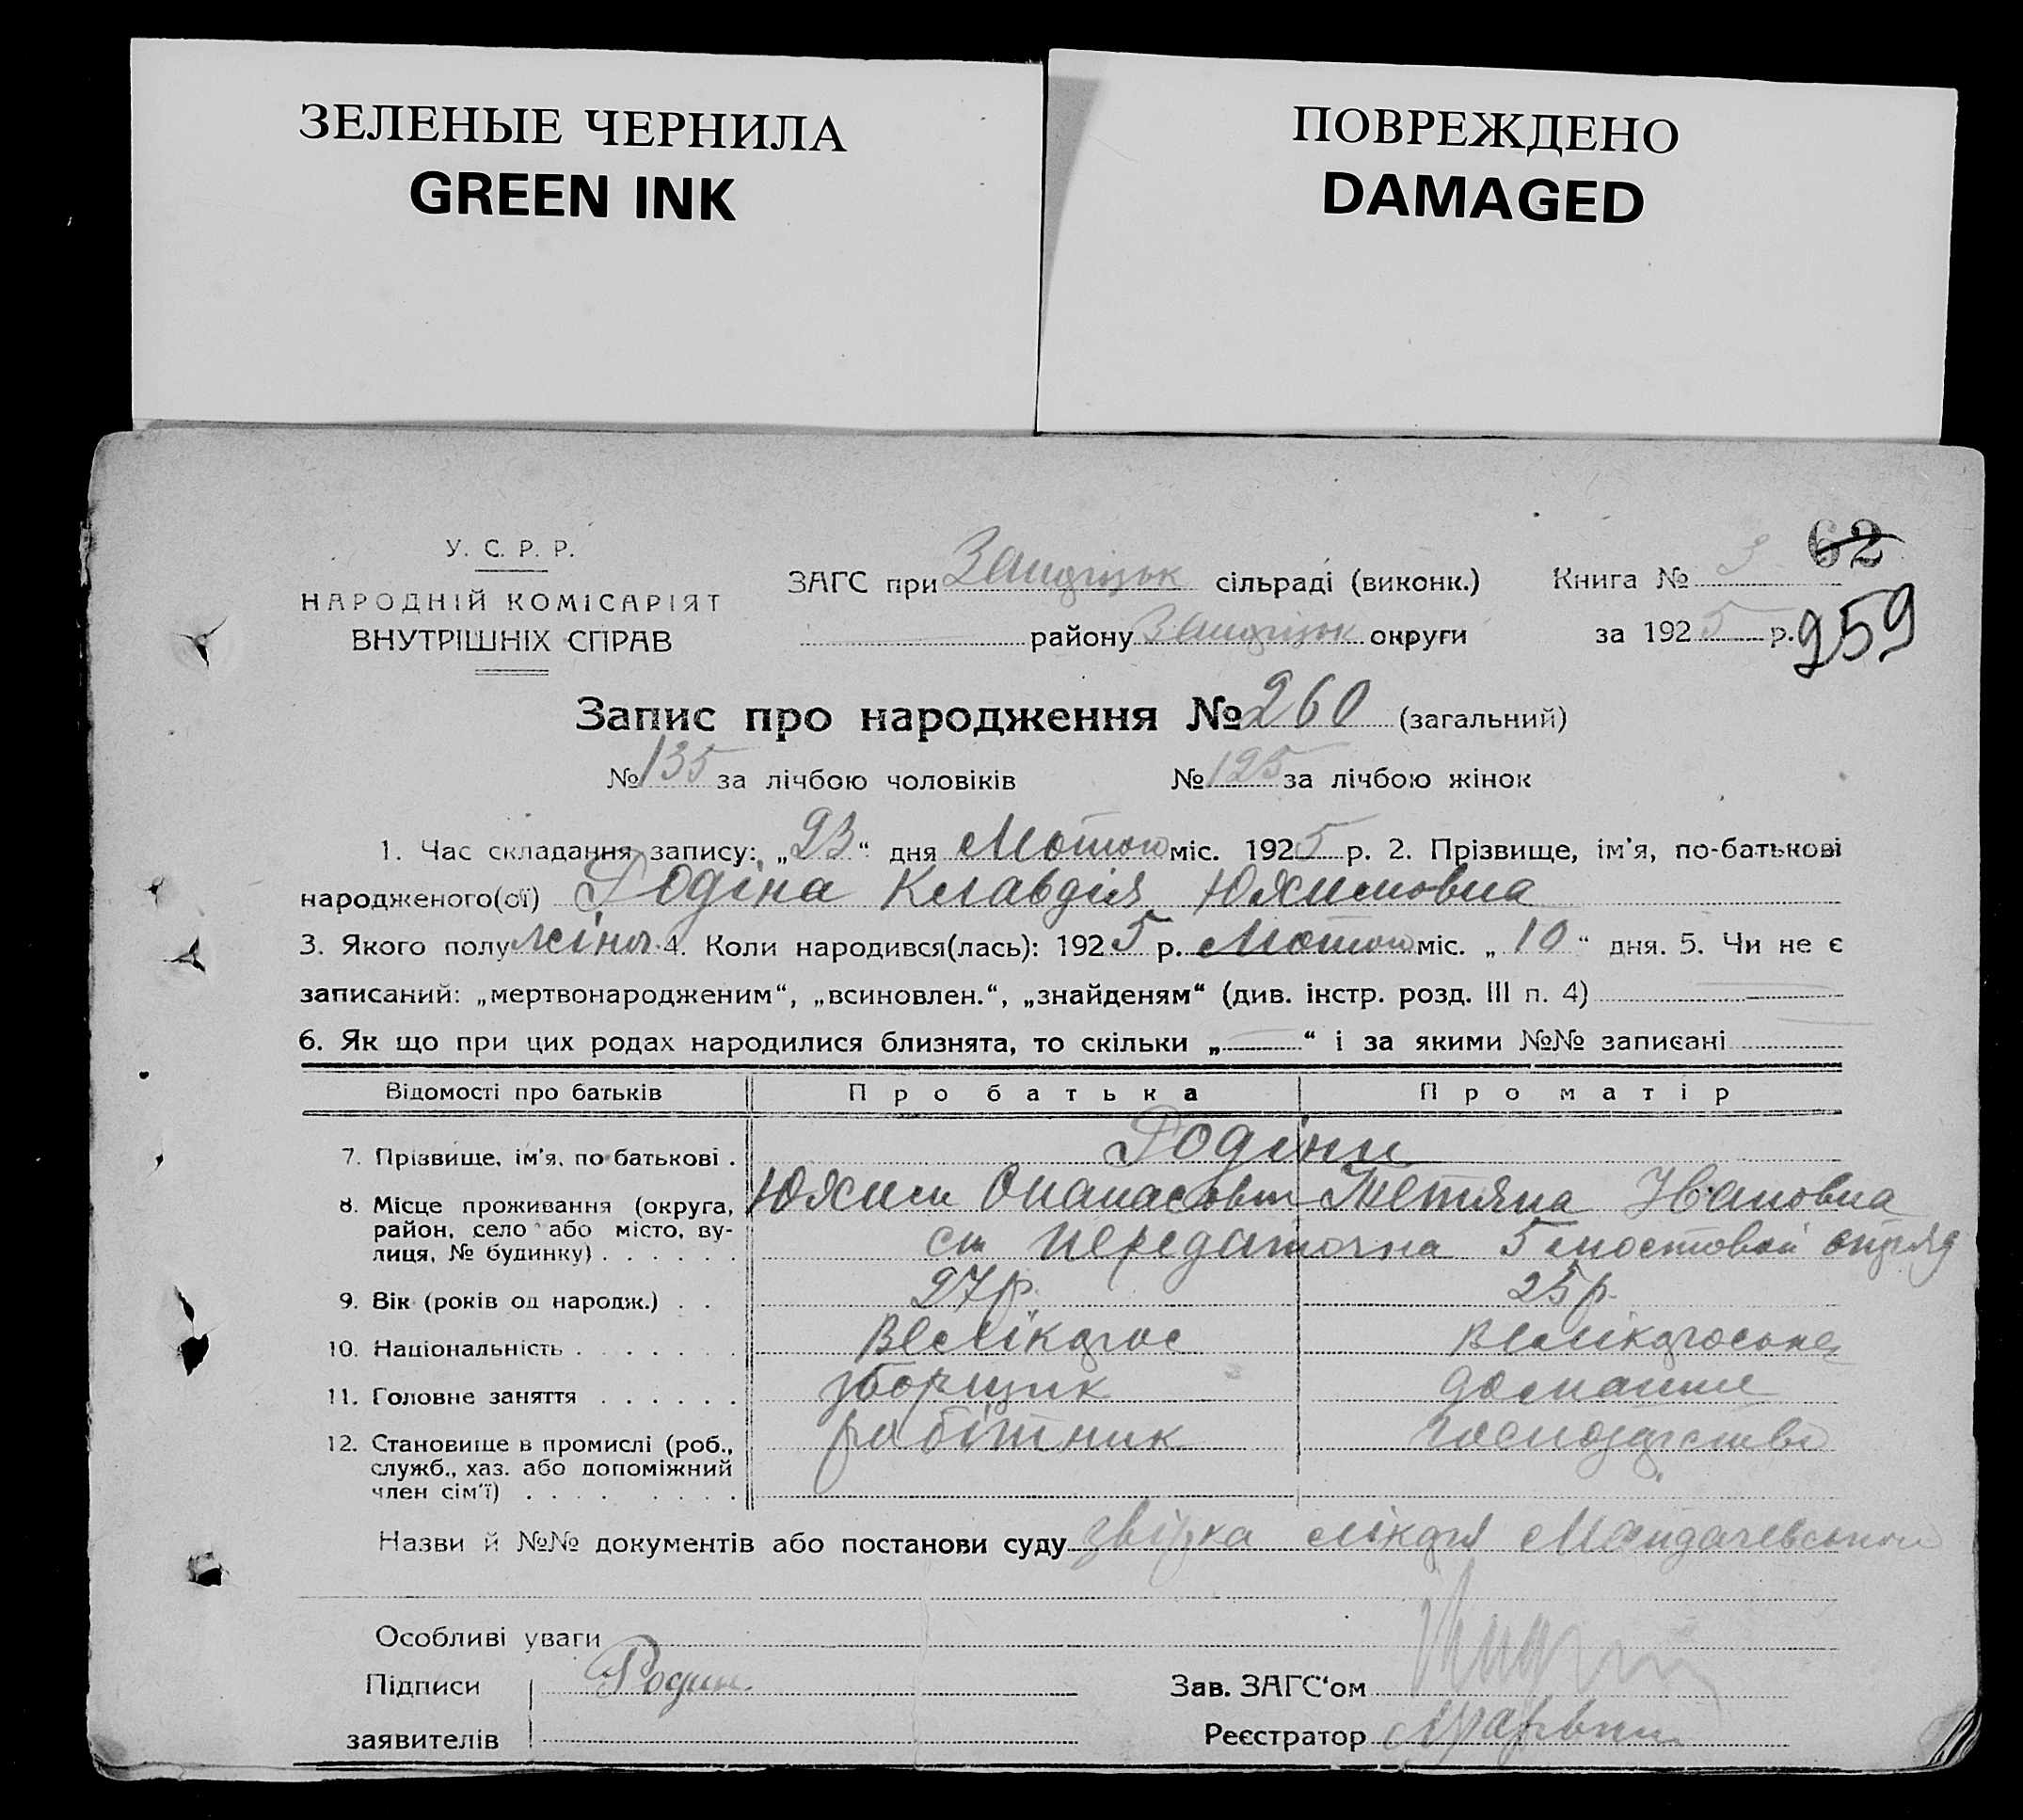 ЗЕЛЕНЫЕ ЧЕРНИЛА
GREEN INK
ПОВРЕЖДЕНО
DAMAGED
62
У. С. Р. Р.
НАРОДНІЙ КОМІСАРІЯТ
ВНУТРІШНІХ СПРАВ
ЗАГС при сільраді (виконк.)
району округи
Книга № 3
за 1925 р.
259
Запис про народження № 260 (загальний)
№ 135 за лічбою чоловіків № 125 за лічбою жінок
1. Час складання запису: „23“ дня Лютого міс. 1925 р. 2. Прізвище, ім'я, по-батькові
народженого(ої) Родіна Клавдія Юхимовна
3. Якого полу жіноч. 4. Коли народився(лась): 1925 р. Лютого міс. „10“ дня. 5. Чи не є
записаний: „мертвонародженим“, „всиновлен.“, „знайденям“ (див. інстр. розд. III п. 4)
6. Як що при цих родах народилися близнята, то скільки „—“ і за якими №№ записані
Відомості про батьків Про батька Про матір
7. Прізвище, ім'я, по батькові . Родіни
Юхим Опанасович Тетяна Івановна
8. Місце проживання (округа, район, село або місто, ву-
лиця, № будинку) . . . . . . ст Передаточна 5 мостовой отряд
9. Вік (років од народж.) . . 27 р. 25 р.
10. Національність . . . . . . . Велікорос Велікороська
11. Головне заняття . . . . . . зборщик домашнє
12. Становище в промислі (роб., робітник господарство
служб., хаз. або допоміжний
член сім'ї) . . . . . . . .
Назви й №№ документів або постанови суду звістка лікаря
Особливі уваги
Підписи Родин
заявителів
Зав. ЗАГС‘ом
Реєстратор